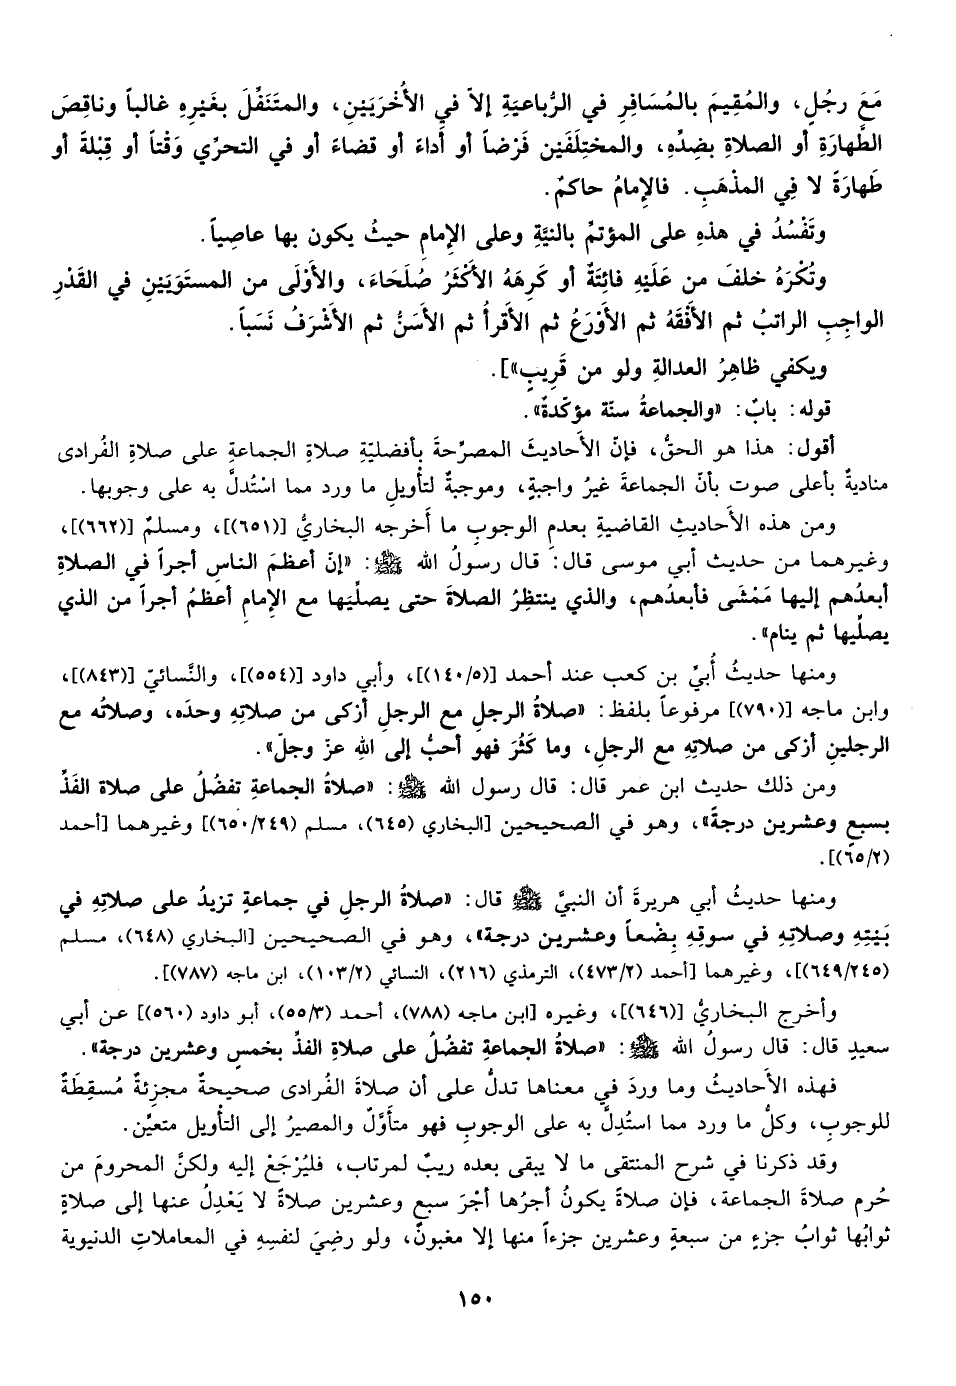 مَعَ رجُلٍ، والمُقِيمَ بالمُسَافِرِ في الرُّباعيَةِ إلاّ في الأُخْرَيَيْنِ، والمتَنَفِّلَ بغَيرِهِ غالباً وناقِصَ
الطَّهارَةِ أو الصلاةِ بضِدِّهِ، والمختِلَفَيْن فَرْضاً أو أَداءً أو قضاءً أو في التحرِّي وَقْتاً أو قِبْلةً أو
طَهارَةً لا فِي المذْهَبِ. فالإِمامُ حاكمٌ.
وتَفْسُدُ في هذهِ على المؤتمِّ بالنيَّةِ وعلى الإِمامِ حيثُ يكون بها عاصِياً.
وتُكْرَهُ خلفَ من عَلَيْهِ فائِتَةٌ أو كَرِهَهُ الأكْثَرُ صُلَحَاءَ، والأَوْلَى من المستَوَيَيْنِ في القَدْرِ
الواجِبِ الراتبُ ثم الأَفْقَهُ ثم الأَوْرَعُ ثم الأقرأُ ثم الأسَنُّ ثم الأشْرَفُ نَسَباً.
ويكفي ظاهِرُ العدالةِ ولو من قَرِيبٍ»].
قوله: بابٌ: «والجماعةُ سنّة مؤكّدةٌ».
أقول: هذا هو الحقُّ، فإنّ الأحاديثَ المصرِّحةَ بأفضليّةِ صلاةِ الجماعةِ على صلاةِ الفُرادى
مناديةٌ بأعلى صوت بأنّ الجماعةَ غيرُ واجبةٍ، وموجبةٌ لتأويلِ ما ورد مما اسْتُدلَّ به على وجوبها.
ومن هذه الأَحاديثِ القاضيةِ بعدمِ الوجوبِ ما أَخرجه البخاريُّ [(٦٥١)]، ومسلمٌ [(٦٦٢)]،
وغيرهما من حديث أبي موسى قال: قال رسولُ الله ﷺ: «إنّ أعظمَ الناسِ أجراً في الصلاةِ
أبعدُهم إليها مَمْشَى فأبعدُهم، والذي ينتظِرُ الصلاةَ حتى يصلِّيَها مع الإِمامِ أعظمُ أجراً من الذي
يصلِّيها ثم ينام».
ومنها حديثُ أُبيِّ بن كعب عند أحمد [(١٤٠/٥)]، وأبي داود [(٥٥٤)]، والنَّسائيّ [(٨٤٣)]،
وابن ماجه [(٧٩٠)] مرفوعاً بلفظ: «صلاةُ الرجلِ مع الرجلِ أزكى من صلاتِهِ وحدَه، وصلاتُه مع
الرجلينِ أزكى من صلاتِهِ مع الرجل، وما كثُرَ فهو أحبُّ إلى اللهِ عزّ وجلّ».
ومن ذلك حديث ابن عمر قال: قال رسول الله ﷺ: «صلاةُ الجماعةِ تفضُلُ على صلاة الفَذِّ
بسبعٍ وعشرين درجةً»، وهو في الصحيحين [البخاري (٦٤٥)، مسلم (٦٥٠/٢٤٩)] وغيرهما [أحمد
(٦٥/٢)].
ومنها حديثُ أبي هريرةَ أن النبيَّ ﷺ قال: «صلاةُ الرجلِ في جماعةٍ تزيدُ على صلاتِهِ في
بَيْتِهِ وصلاتِهِ في سوقِهِ بِضْعاً وعشرين درجة»، وهو في الصحيحين [البخاري (٦٤٨)، مسلم
(٦٤٩/٢٤٥)]، وغيرهما [أحمد (٤٧٣/٢)، الترمذي (٢١٦)، النسائي (١٠٣/٢)، ابن ماجه (٧٨٧)].
وأخرج البخاريُّ [(٦٤٦)]، وغيره [ابن ماجه (٧٨٨)، أحمد (٥٥/٣)، أبو داود (٥٦٠)] عن أبي
سعيدٍ قال: قال رسولُ الله ﷺ: «صلاةُ الجماعةِ تفضُلُ على صلاةِ الفذِّ بخمسٍ وعشرين درجة».
فهذه الأَحاديثُ وما وردَ في معناها تدلُّ على أن صلاةَ الفُرادى صحيحةٌ مجزئةٌ مُسقِطَةٌ
للوجوبِ، وكلُّ ما ورد مما استُدِلَّ به على الوجوبِ فهو متأوَّلٌ والمصيرُ إلى التأويل متعيِّن.
وقد ذكرنا في شرح المنتقى ما لا يبقى بعده ريبٌ لمرتاب، فليُرْجَعْ إليه ولكنَّ المحرومَ من
حُرم صلاةَ الجماعة، فإن صلاةً يكونُ أجرُها أجْرَ سبعٍ وعشرين صلاةً لا يَعْدِلُ عنها إلى صلاةٍ
ثوابُها ثوابُ جزءٍ من سبعةٍ وعشرين جزءاً منها إلا مغبونٌ، ولو رضِيَ لنفسِهِ في المعاملاتِ الدنيوية
١٥٠